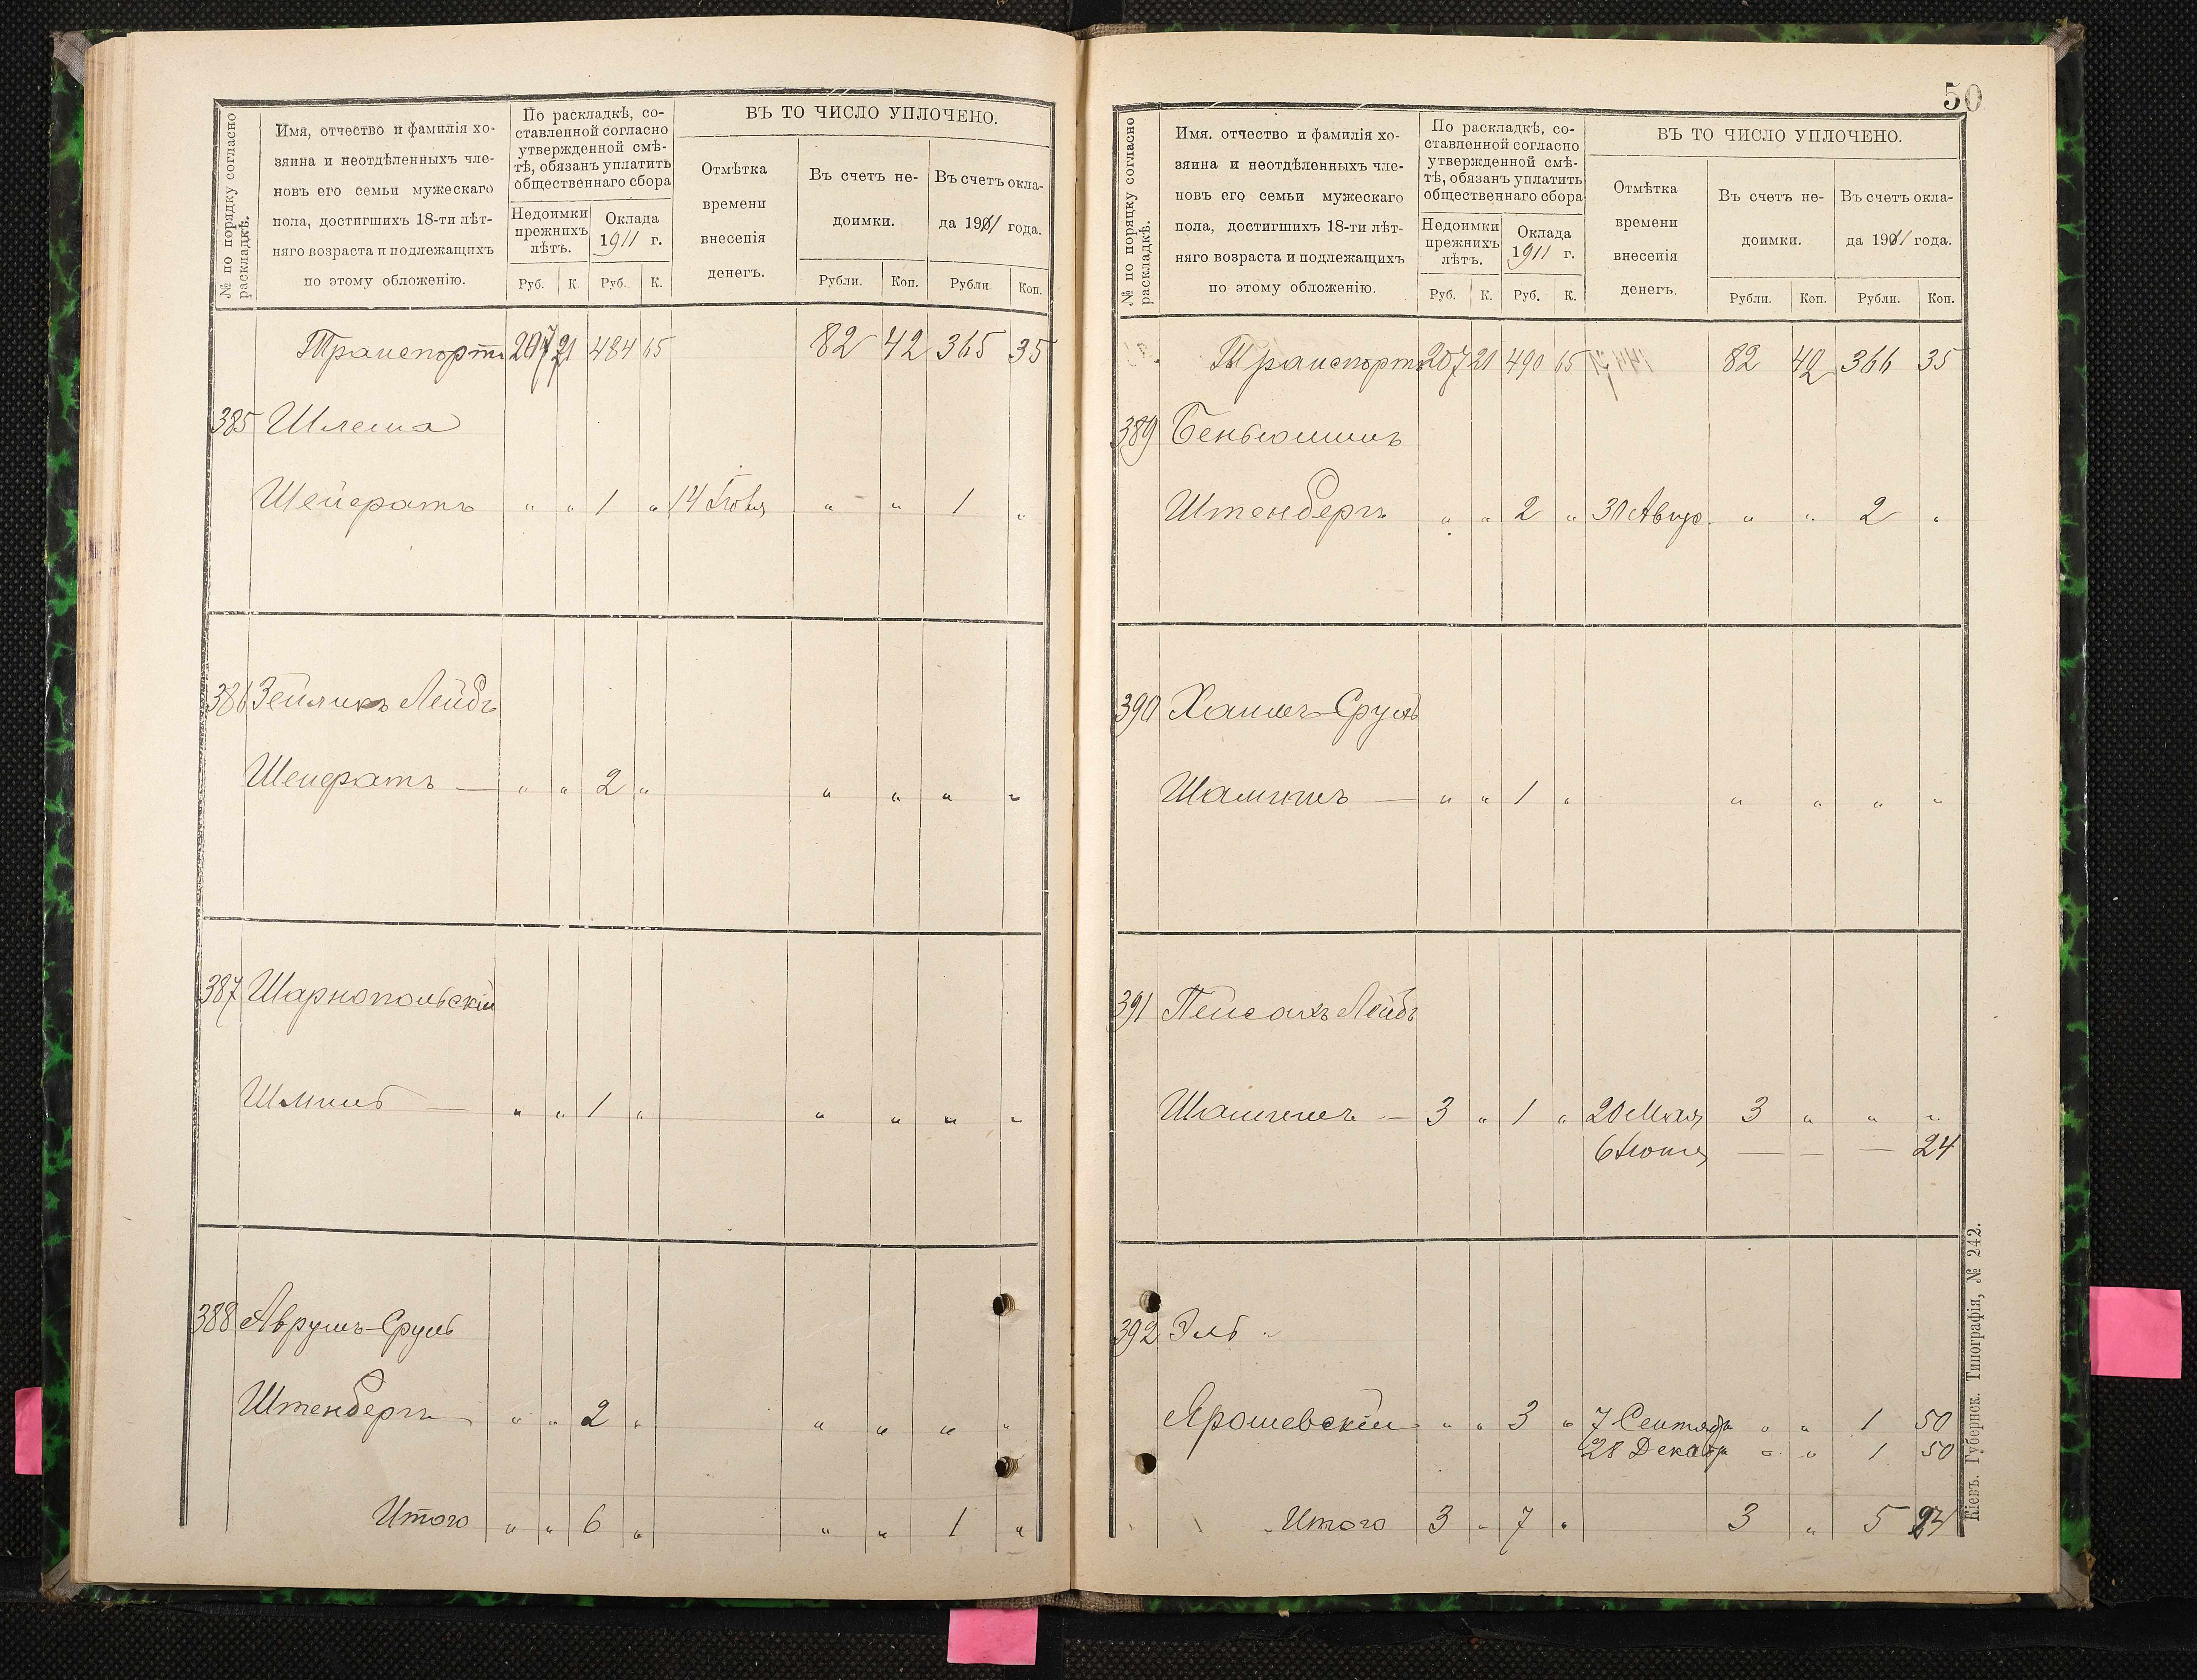 № по порядку согласно раскладкѣ.
Имя, отчество и фамилія хо-
зяина и неотдѣленныхъ чле-
новъ его семьи мужескаго
пола, достигшихъ 18-ти лѣт-
няго возраста и подлежащихъ
по этому обложенію.
По раскладкѣ, со-
ставленной согласно
утвержденной смѣ-
тѣ, обязанъ уплатить
общественнаго сбора
Недоимки
прежнихъ
лѣтъ.
Оклада
1911 г.
Руб. К. Руб. К.
ВЪ ТО ЧИСЛО УПЛОЧЕНО.
Отмѣтка
времени
внесенія
денегъ.
Въ счетъ не-
доимки.
Въ счетъ окла-
да 1911 года.
Рубли. Коп. Рубли. Коп.
Транспортъ 207 21 484 65 82 42 365 35
385 Шлема
Шейфратъ " " 1 " 14 Іюля " " 1 "
386 Зейликъ Лейбъ
Шейфратъ — " " 2 " " " " "
387 Шарнопольскій
Шмиль — " " 1 " " " " "
388 Аврумъ-Сруль
Штенбергъ " " 2 " " " " "
Итого " " 6 " " " 1 "
50
№ по порядку согласно раскладкѣ.
Имя. отчество и фамилія хо-
зяина и неотдѣленныхъ чле-
новъ его семьи мужескаго
пола, достигшихъ 18-ти лѣт-
няго возраста и подлежащихъ
по этому обложенію.
По раскладкѣ, со-
ставленной согласно
утвержденной смѣ-
тѣ, обязанъ уплатить
общественнаго сбора
Недоимки
прежнихъ
лѣтъ.
Оклада
1911 г.
Руб. К. Руб. К.
ВЪ ТО ЧИСЛО УПЛОЧЕНО.
Отмѣтка
времени
внесенія
денегъ.
Въ счетъ не-
доимки.
Въ счетъ окла-
да 1911 года.
Рубли. Коп. Рубли. Коп.
Транспортъ 207 21 490 65 82 42 366 35
389 Беньюминъ
Штенбергъ " " 2 " 30 Авгус. " " 2 "
390 Хаимъ-Сруль
— " " 1 " " " " "
391 Пейсахъ Лейбъ
— 3 " 1 " 20 Мая 3 " " "
6 Іюня — — — 24
392 Эль
Ярошевскій " " 3 " 7 Сентября " " 1 50
28 Декабря " " 1 50
Итого 3 " 7 " 3 " 5 24
Кіевъ. Губернск. Типографія, № 242.